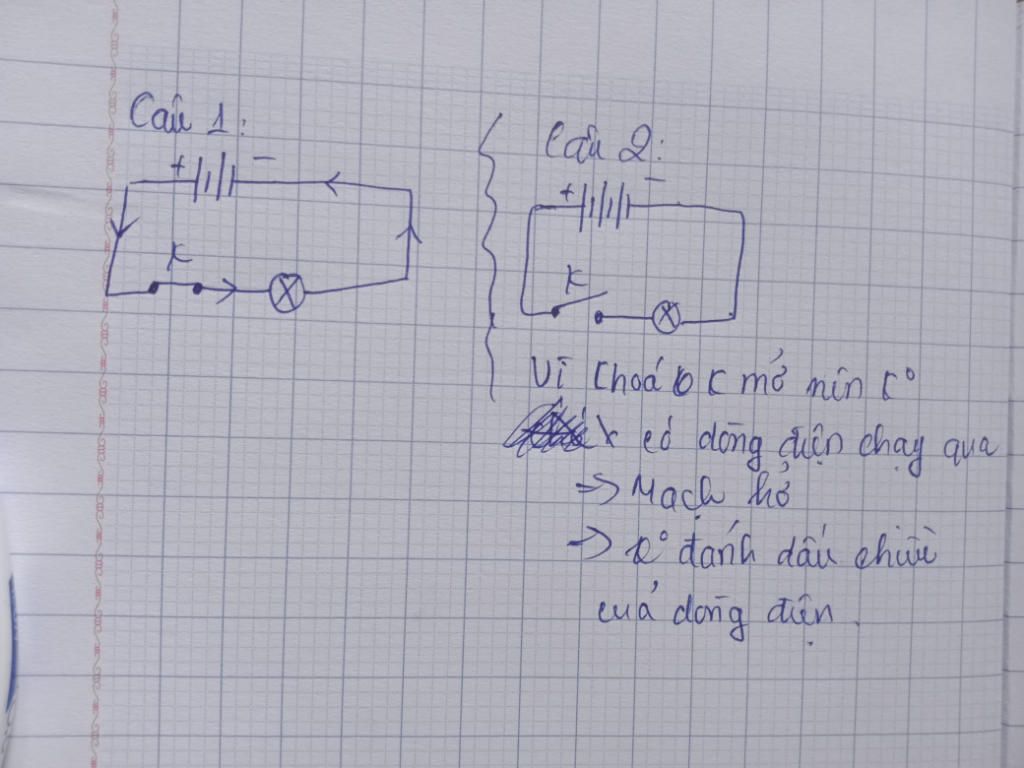 Câu 1:
+ −
K
Câu 2:
+ −
K
Vì khoá K mở nên k°
có dòng điện chạy qua
=> Mạch hở
=> k° đánh dấu chiều
của dòng điện.